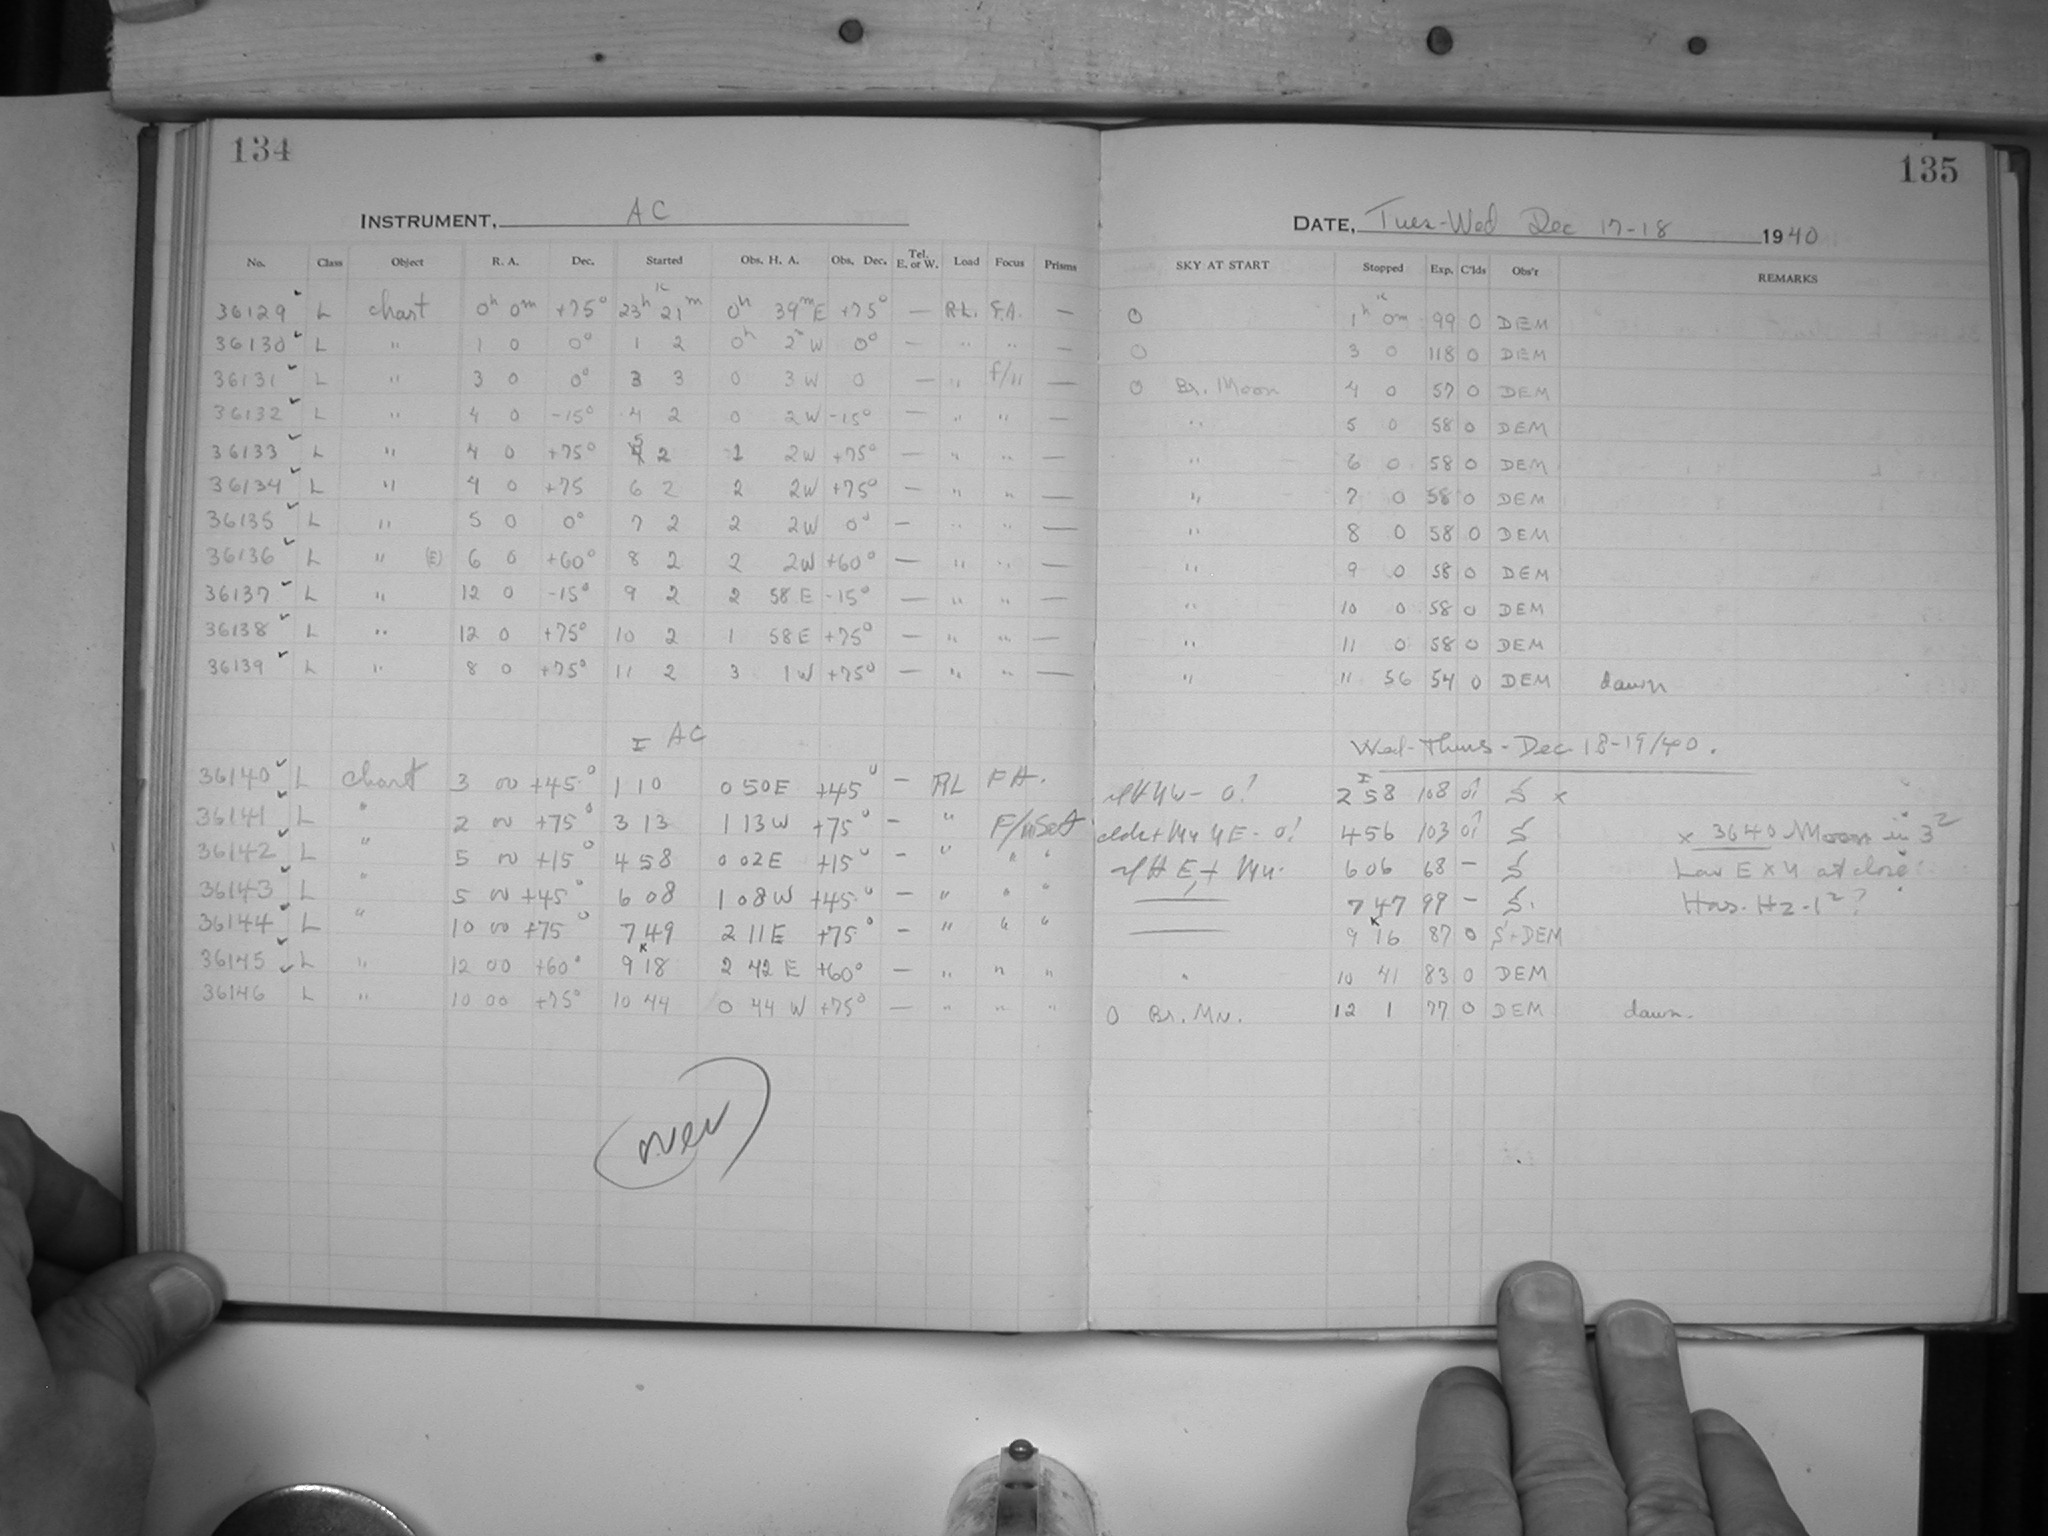 134
135
INSTRUMENT, AC
DATE, Tues-Wed Dec 17-18 1940
No. Class Object R. A. Dec. Started Obs. H. A. Obs. Dec. Tel. E. or W. Load Focus Prisms SKY AT START Stopped Exp. C'lds Obs'r REMARKS
36129 L chart 0h 0m +75° 23h 21m 0h 39m E +75° — R.L. F.A. — 0 1h 0m 99 0 DEM
36130 L " 1 0 0° 1 2 0h 2m W 0° — " " — 0 3 0 118 0 DEM
36131 L " 3 0 0° 3 3 0 3 W 0 — " f/11 — 0 Br. Moon 4 0 57 0 DEM
36132 L " 4 0 -15° 4 2 0 2W -15° — " " — " 5 0 58 0 DEM
36133 L " 4 0 +75° 5 2 1 2W +75° — " " — " 6 0 58 0 DEM
36134 L " 4 0 +75 6 2 2 2W +75° — " " — " 7 0 58 0 DEM
36135 L " 5 0 0° 7 2 2 2W 0° — " " — " 8 0 58 0 DEM
36136 L " (E) 6 0 +60° 8 2 2 2W +60° — " " — " 9 0 58 0 DEM
36137 L " 12 0 -15° 9 2 2 58 E -15° — " " — " 10 0 58 0 DEM
36138 L " 12 0 +75° 10 2 1 58E +75° — " " — " 11 0 58 0 DEM
36139 L " 8 0 +75° 11 2 3 1W +75° — " " — " 11 56 54 0 DEM dawn
AC
Wed-Thurs-Dec 18-19/40.
36140 L chart 3 00 +45° 1 10 0 50E +45° — RL FA. 2 58 108 x
36141 L " 2 00 +75° 3 13 1 13W +75° — " 4 56 103 x 3640 Moon in 3²
36142 L " 5 00 +15° 4 58 0 02E +15° — " " " 6 06 68 — Low E x 4 at close
36143 L " 5 00 +45° 6 08 1 08W +45° — " " " 7 47 99 —
36144 L " 10 00 +75° 7 49 2 11E +75° — " " " 9 16 87 0 S+DEM
36145 L " 12 00 +60° 9 18 2 42 E +60° — " " " " 10 41 83 0 DEM
36146 L " 10 00 +75° 10 44 0 44 W +75° — " " " 0 Br. Mn. 12 1 77 0 DEM dawn.
over